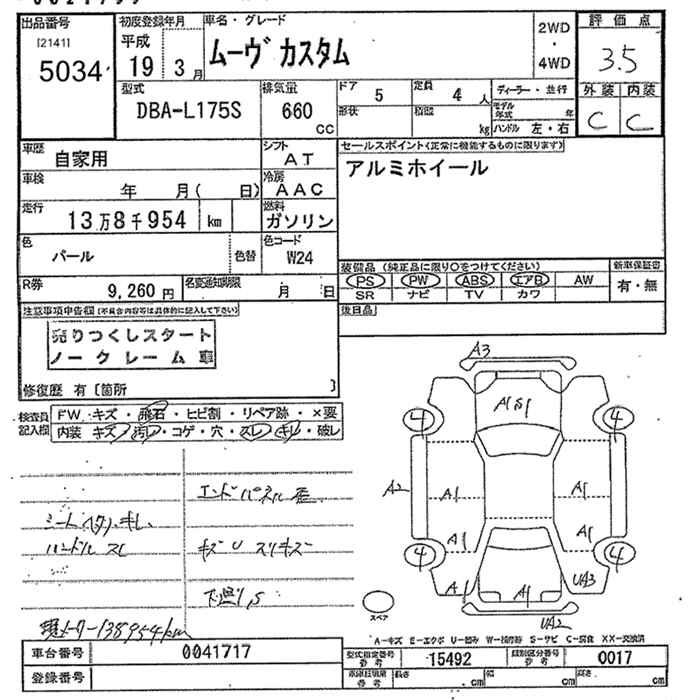 出品番号
[2141]
5034
初度登録年月
平成
19 3月
車名・グレード
ムーヴカスタム
2WD
・
4WD
評価点
3.5
外装 内装
C C
型式
DBA-L175S
排気量
660
cc
ドア 5
形状
定員 4 人
積載 kg
ディーラー・並行
モデル年式 年
ハンドル 左・右
車歴 自家用
シフト AT
車検 年 月( 日)
冷房 AAC
走行 13万8千954 km
燃料 ガソリン
色 パール 色替
色コード W24
R券 9,260円
名変通知期限 月 日
セールスポイント(正常に機能するものに限ります)
アルミホイール
装備品(純正品に限り○をつけてください)
PS PW ABS エアB AW
SR ナビ TV カワ
新車保証書
有・無
後日品
注意事項申告欄(不具合内容等は具体的に記入して下さい)
売りつくしスタート
ノークレーム車
修復歴 有〔箇所 〕
検査員記入欄
FW キズ・飛石・ヒビ割・リペア跡・×要
内装 キズ・汚レ・コゲ・穴・スレ・キレ・破レ
エンドパネル歪
シート(タ)、キレ
ハンドル スレ
キズ U スリキズ
下廻りS
メーター138954km
A3
A1S1
4
4
A2
A1
A1
A1
A1
4
4
A1
A1
UA3
UA2
スペア
A-キズ E-エクボ U-凹み W-補修跡 S-サビ C-腐食 XX-交換済
車台番号 0041717
登録番号
型式指定番号 参考 15492
類別区分番号 参考 0017
長さ cm 幅 cm 高さ cm